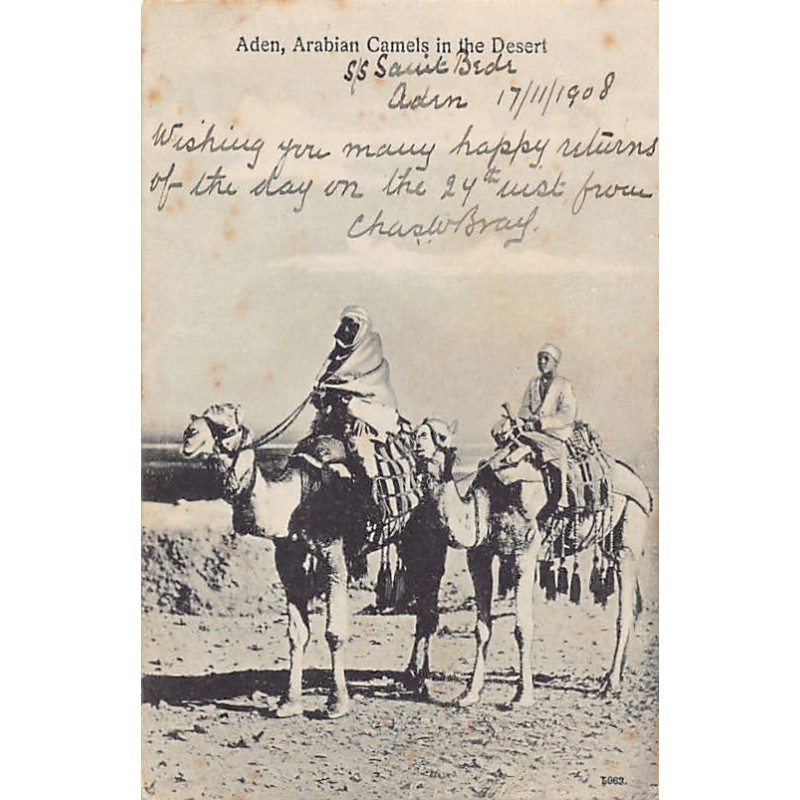 Aden, Arabian Camels in the Desert
S/S Saint Bede
Aden 17/11/1908
Wishing you many happy returns
of the day on the 24th inst from
Chas W Bray.
5063.